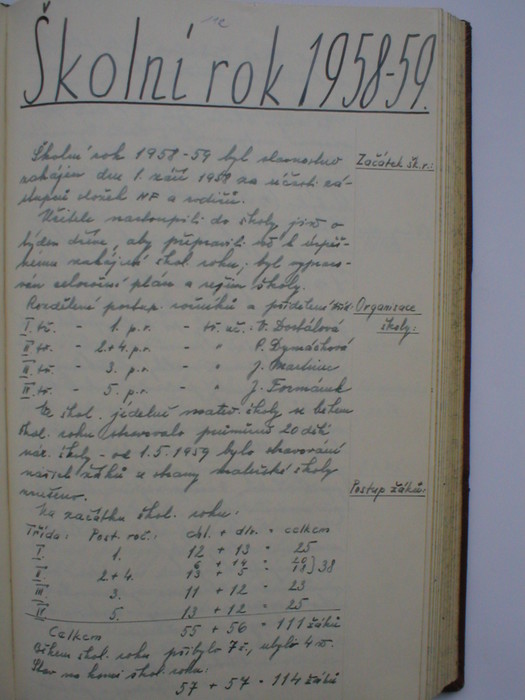 Školní rok 1958-59.
Školní rok 1958-59 byl slavnostně
Začátek šk. r.:
zahájen dne 1. září 1958 za účasti zá-
stupců složek NF a rodičů.
Učitelé nastoupili do školy již o
týden dříve, aby připravili vše k úspěš-
nému zahájení škol. roku; byl vypraco-
ván celoroční plán a režim školy.
Rozdělení postup. ročníků a přidělení tříd:
Organizace školy:
I. tř. - 1. p. r. - tř. uč.: V. Dostálová
II. tř. - 2.+4. p. r. - " P. Dymáčková
III. tř. - 3. p. r. - " J. Martinec
IV. tř. - 5. p. r. - " J. Formánek
Ve škol. jídelně mateř. školy se během
škol. roku stravovalo průměrně 20 dětí
nár. školy - od 1.5.1959 bylo stravování
našich žáků ze strany mateřské školy
zrušeno.
Postup žáků:
Na začátku škol. roku:
Třída: Post. roč.: chl. + děv. = celkem
I. 1. 12 + 13 = 25
6 + 14 = 20
II. 2+4. 13 + 5 = 18 } 38
III. 3. 11 + 12 = 23
IV. 5. 13 + 12 = 25
Celkem 55 + 56 = 111 žáků
Během škol. roku přibylo 7 ž., ubylo 4 ž.
Stav na konci škol. roku:
57 + 57 = 114 žáků